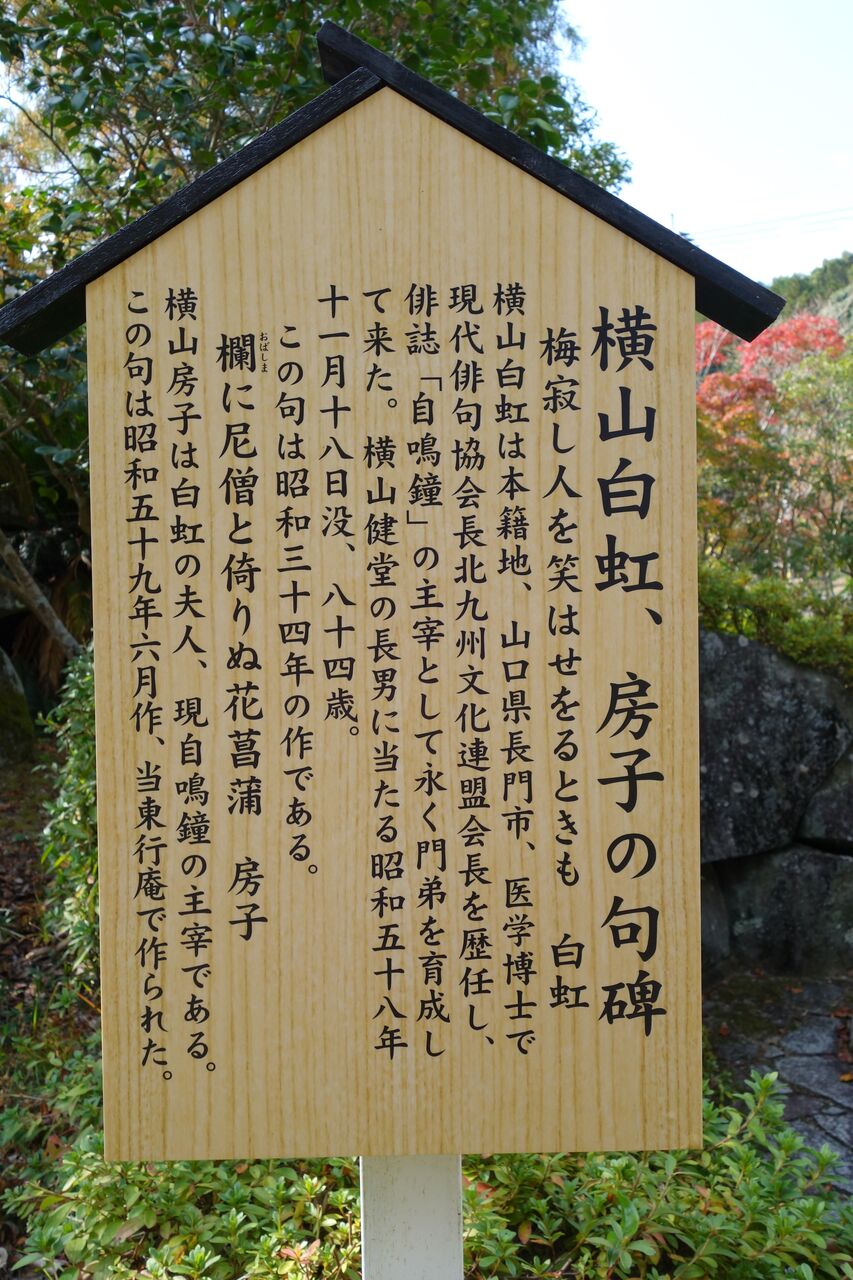 横山白虹、房子の句碑
梅寂し人を笑はせをるときも　白虹
横山白虹は本籍地、山口県長門市、医学博士で
現代俳句協会長北九州文化連盟会長を歴任し、
俳誌「自鳴鐘」の主宰として永く門弟を育成し
て来た。横山健堂の長男に当たる昭和五十八年
十一月十八日没、八十四歳。
この句は昭和三十四年の作である。
欄に尼僧と倚りぬ花菖蒲　房子
おばしま
横山房子は白虹の夫人、現自鳴鐘の主宰である。
この句は昭和五十九年六月作、当東行庵で作られた。